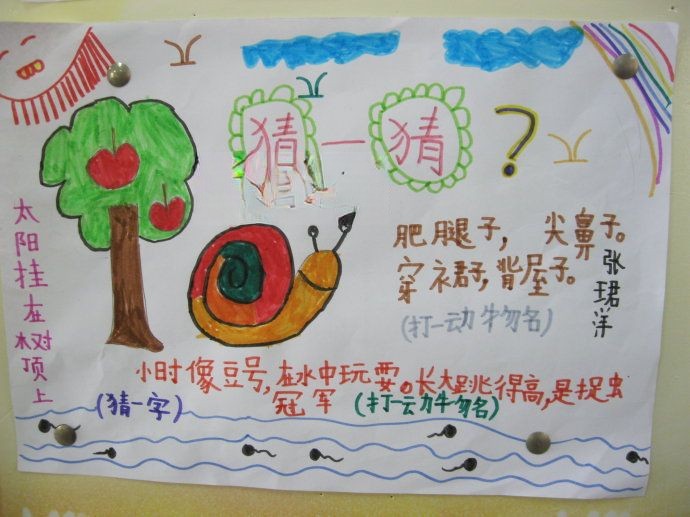 猜一猜?
太阳挂在树顶上
(猜一字)
肥腿子,尖鼻子。
穿衣裙子,背屋子。
(打一动物名)
张珺洋
小时像豆号,在水中玩耍。长大跳得高,是捉虫
冠军(打一动物名)